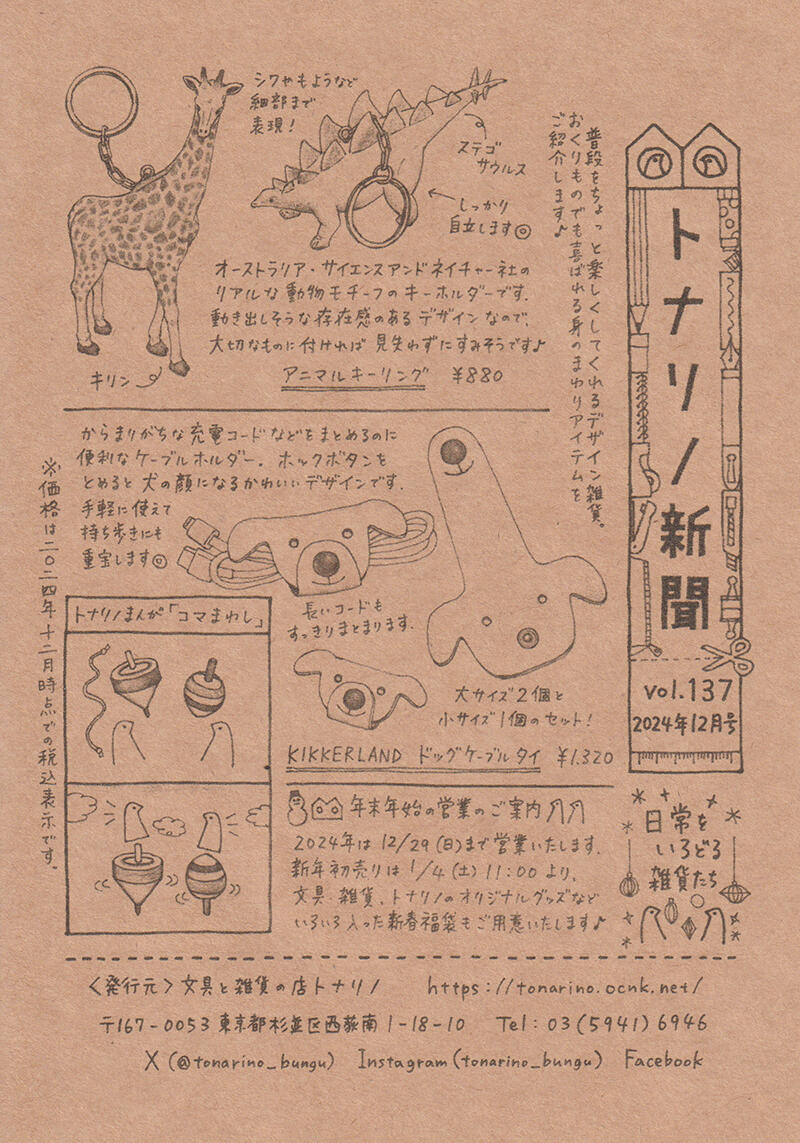 トナリノ新聞
vol.137
2024年12月号
日常を
いろどる
雑貨たち
普段をちょっと楽しくしてくれるデザイン雑貨。
おくりものでも喜ばれる身のまわりアイテムを
ご紹介します♪
シワやもようなど
細部まで
表現！
ステゴ
サウルス
しっかり
自立します◎
オーストラリア・サイエンスアンドネイチャー社の
リアルな動物モチーフのキーホルダーです。
動き出しそうな存在感のあるデザインなので、
大切なものに付ければ見失わずにすみそうです♪
キリン
アニマルキーリング ¥880
からまりがちな充電コードなどをまとめるのに
便利なケーブルホルダー。ホックボタンを
とめると犬の顔になるかわいいデザインです。
手軽に使えて
持ち歩きにも
重宝します◎
長いコードも
すっきりまとまります。
大サイズ2個と
小サイズ1個のセット！
KIKKERLAND ドッグケーブルタイ ¥1.320
※価格は二〇二四年十二月時点での税込表示です。
トナリノまんが「コマまわし」
年末年始の営業のご案内
2024年は12/29(日)まで営業いたします。
新年初売りは1/4(土)11:00より、
文具・雑貨、トナリノのオリジナルグッズなど
いろいろ入った新春福袋もご用意いたします♪
〈発行元〉文具と雑貨の店トナリノ https://tonarino.ocnk.net/
〒167-0053 東京都杉並区西荻南1-18-10 Tel: 03(5941)6946
X (@tonarino_bungu) Instagram (tonarino_bungu) Facebook